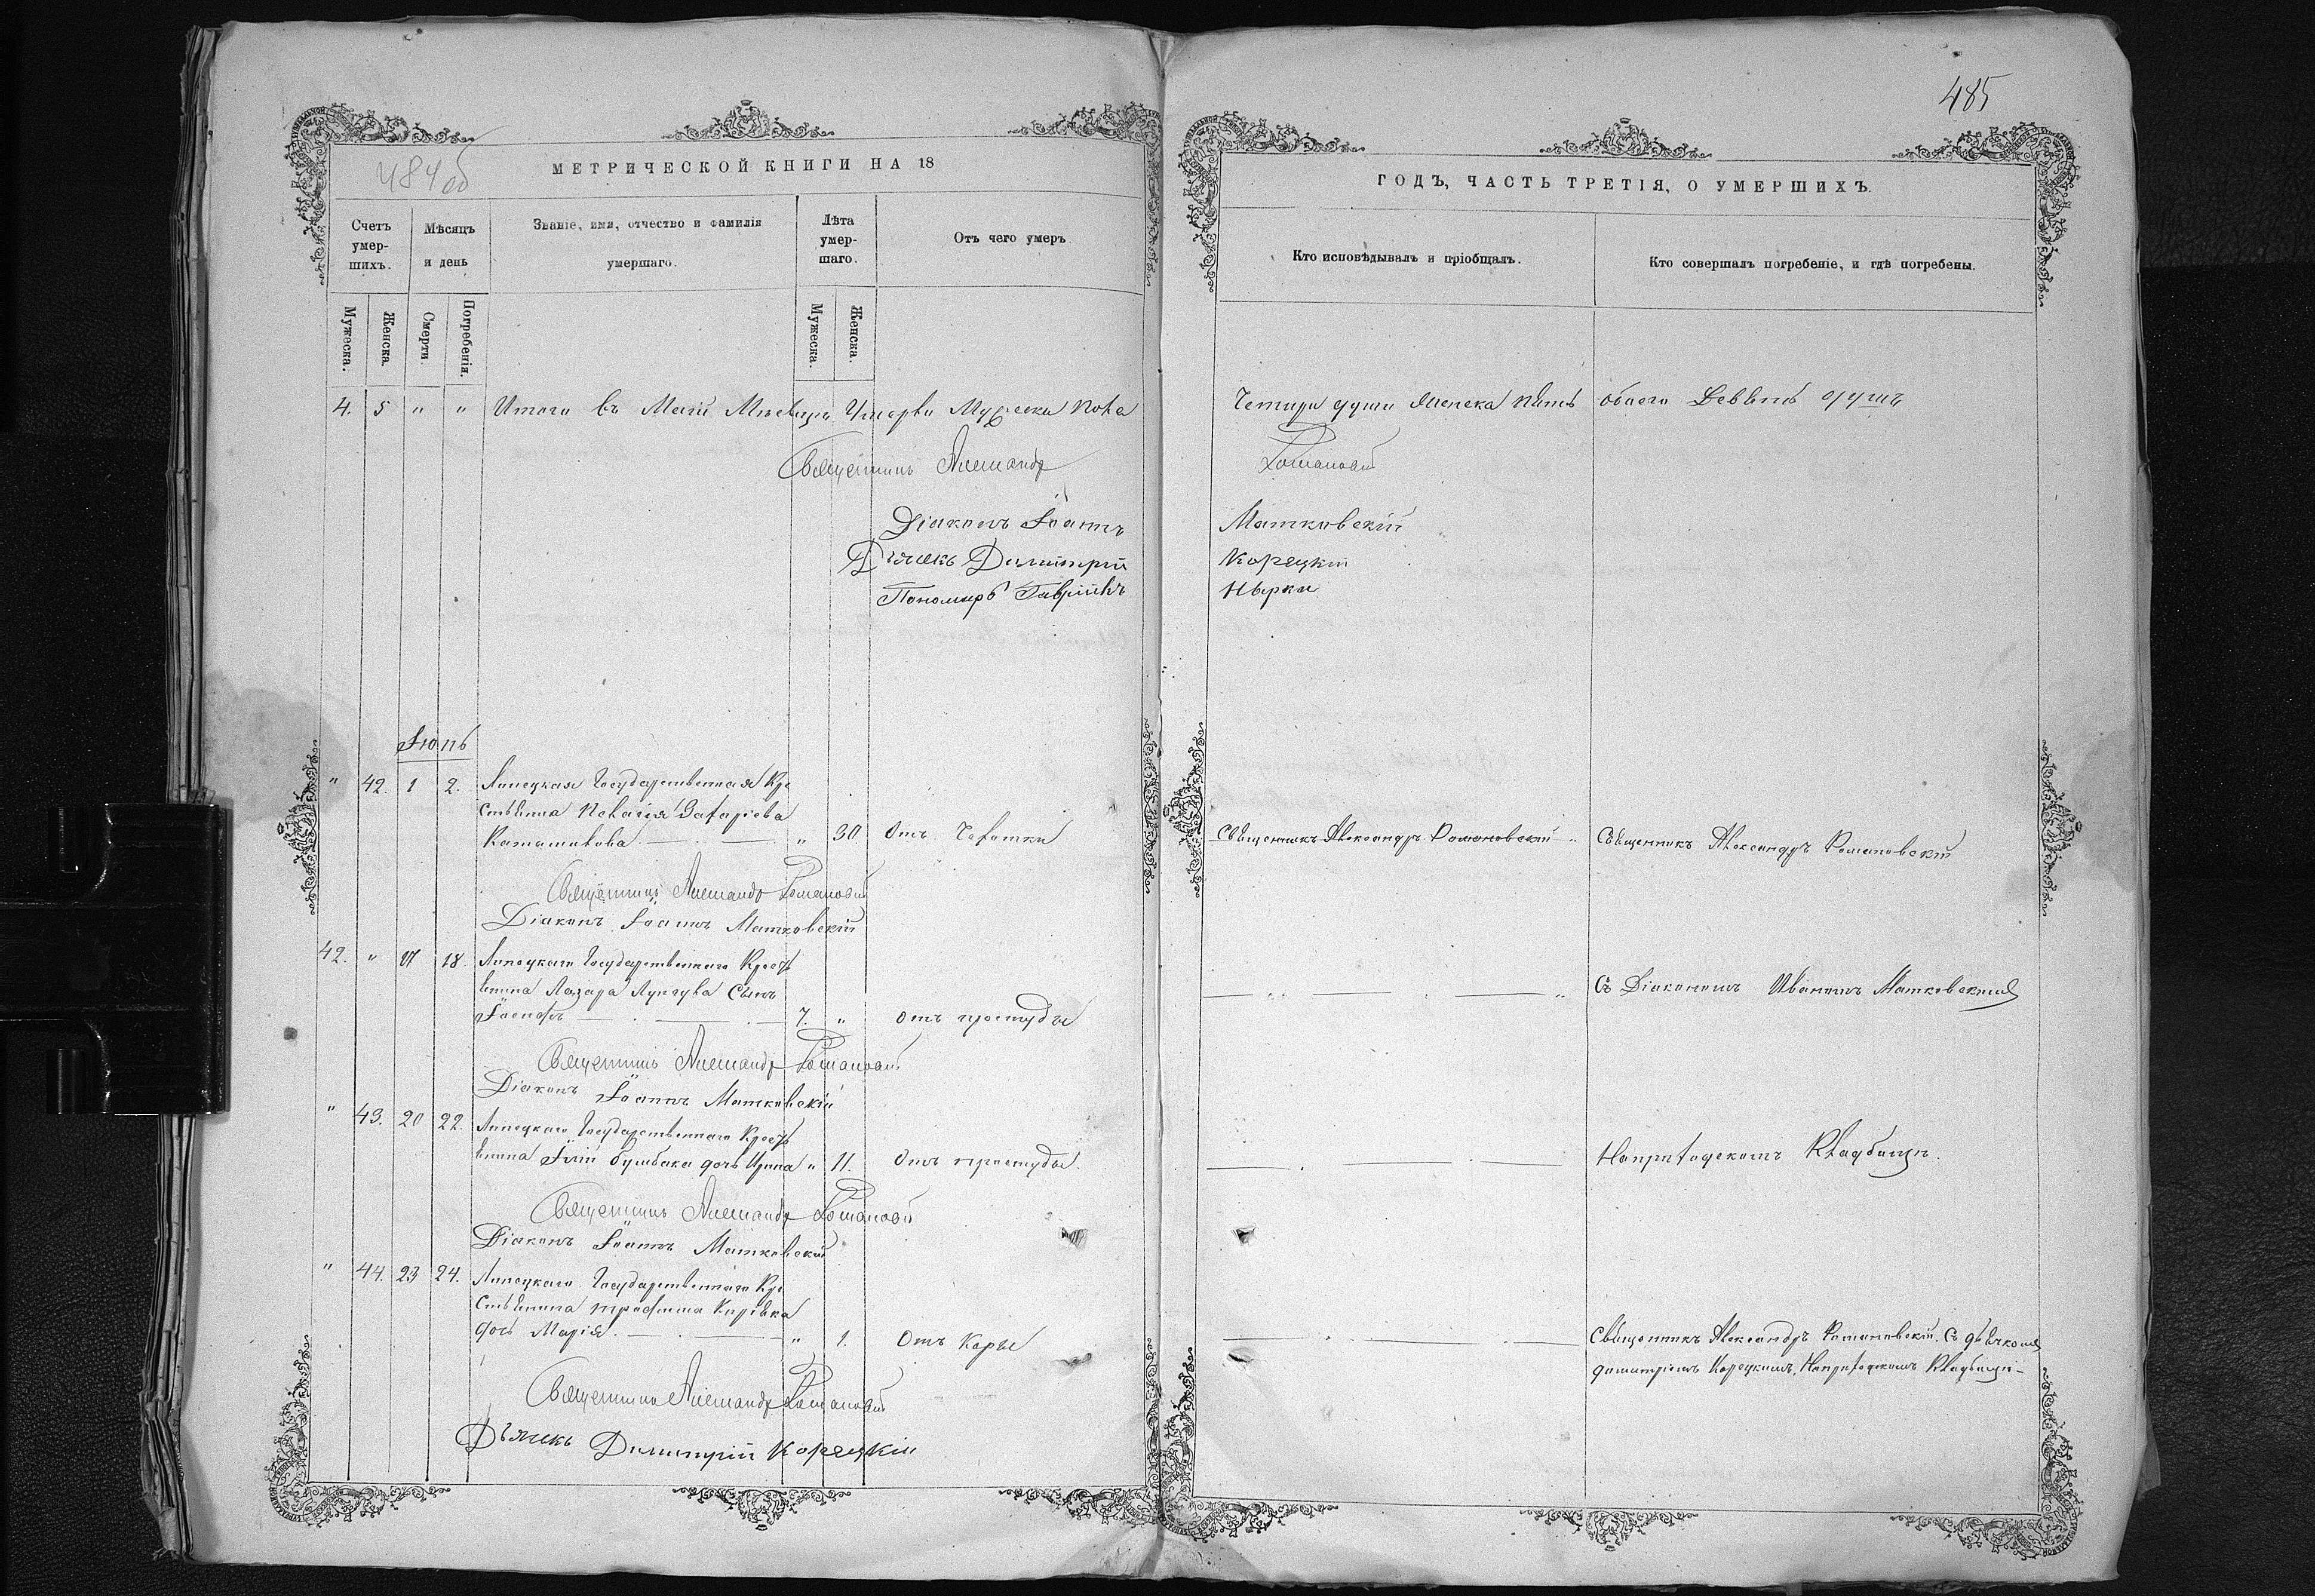 484 об
МЕТРИЧЕСКОЙ КНИГИ НА 18
Счетъ умер-шихъ.
Мѣсяцъ и день
Званіе, имя, отчество и фамилія умершаго.
Лѣта умер-шаго.
Отъ чего умеръ
Мужеска.
Женска.
Смерти
Погребенія.
Мужеска.
Женска.
4. 5 " " Итого въ Маіи Мѣсяцѣ Умерло Мужеска Пола
Священникъ Александръ
Діаконъ Іоаннъ
Дьячекъ Димитрій
Пономарь Гавріилъ
Іюнь
" 42. 1 2. Липецкая Государственная Кре
стьянка Захаріева
" 30 Отъ Чахотки
Священникъ Александръ Романовскій
Діаконъ Іоаннъ Матковскій
42. " 17 18. Липецкаго Государственнаго Кресть
янина Лазара Лунгула Сынъ
Іосифъ 7. " отъ простуды
Священникъ Александръ Романовскій
Діаконъ Іоаннъ Матковскій
" 43. 20 22. Липецкаго Государственнаго Кресть
янина Іліи дочь Ирина " 11. Отъ простуды.
Священникъ Александръ Романовскій
Діаконъ Іоаннъ Матковскій
" 44. 23 24. Липецкаго Государственнаго Кре
стьянина трофима
дочь Марія. " 1. Отъ Коры
Священникъ Александръ Романовскій
Дьячекъ Димитрій Корецкій
485
ГОДЪ, ЧАСТЬ ТРЕТІЯ, О УМЕРШИХЪ.
Кто исповѣдывалъ и пріобщалъ.
Кто совершалъ погребеніе, и гдѣ погребены.
Четыри души Женска пять обоего Девять душъ
Романовскій
Матковскій
Корецкій
Священникъ Александръ Романовскій " Священникъ Александръ Романовскій
" " Съ Діакономъ Иваномъ Матковскимъ
Наприходскомъ Кладбищѣ.
Священникъ Александръ Романовскій. Съ дьячкомъ
димитріемъ Корецкимъ, Наприходскомъ Кладбищѣ